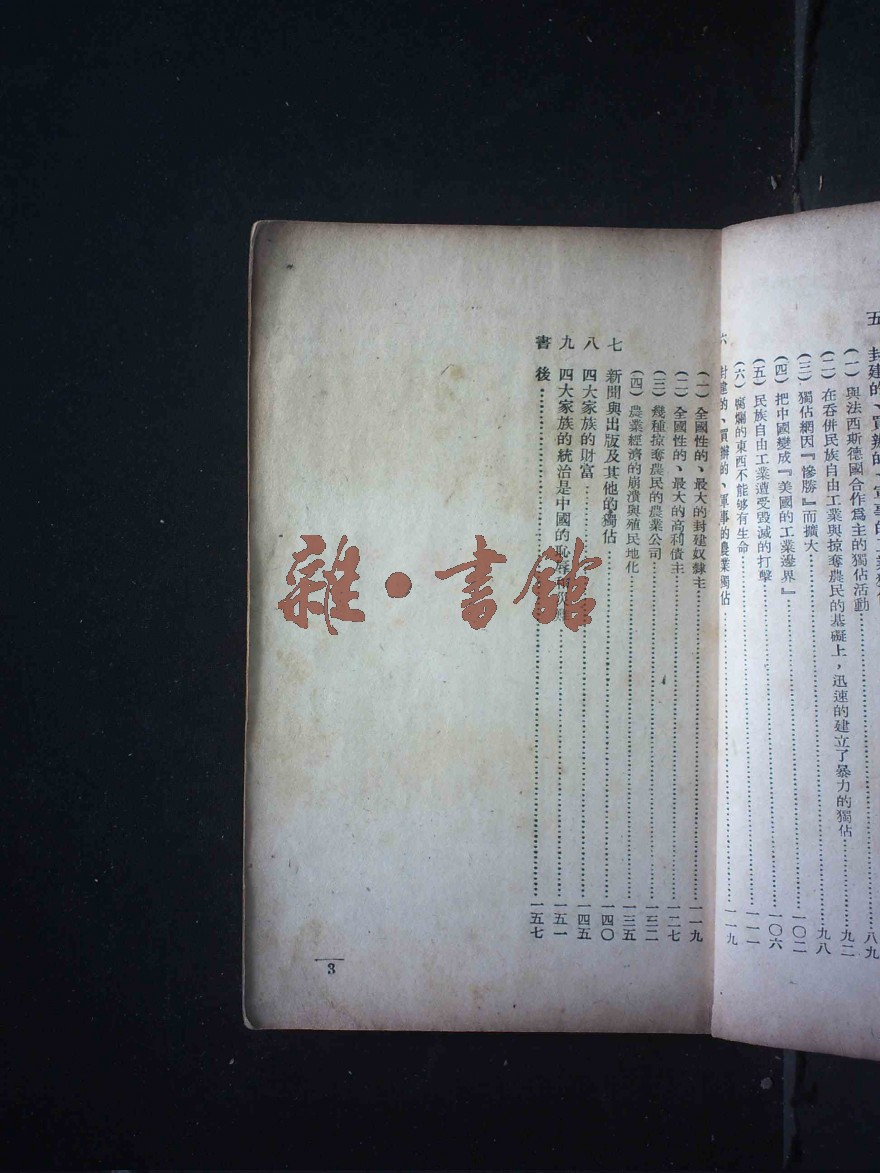 五
封建的、買辦的、軍事的工業獨佔
(一) 與法西斯德國合作爲主的獨佔活動……八九
(二) 在吞併民族自由工業與掠奪農民的基礎上，迅速的建立了暴力的獨佔……九二
(三) 獨佔網因『慘勝』而擴大……九八
(四) 把中國變成『美國的工業邊界』……一〇二
(五) 民族自由工業遭受毀滅的打擊……一〇六
(六) 腐爛的東西不能够有生命……一一一
六 封建的、買辦的、軍事的農業獨佔……一一九
(一) 全國性的、最大的封建奴隸主……一一九
(二) 全國性的、最大的高利債主……一二七
(三) 幾種掠奪農民的農業公司……一三二
(四) 農業經濟的崩潰與殖民地化……一三五
七 新聞與出版及其他的獨佔……一四〇
八 四大家族的財富……一四五
九 四大家族的統治是中國的恥辱和災難……一五一
書後……一五七
3
雜·書館